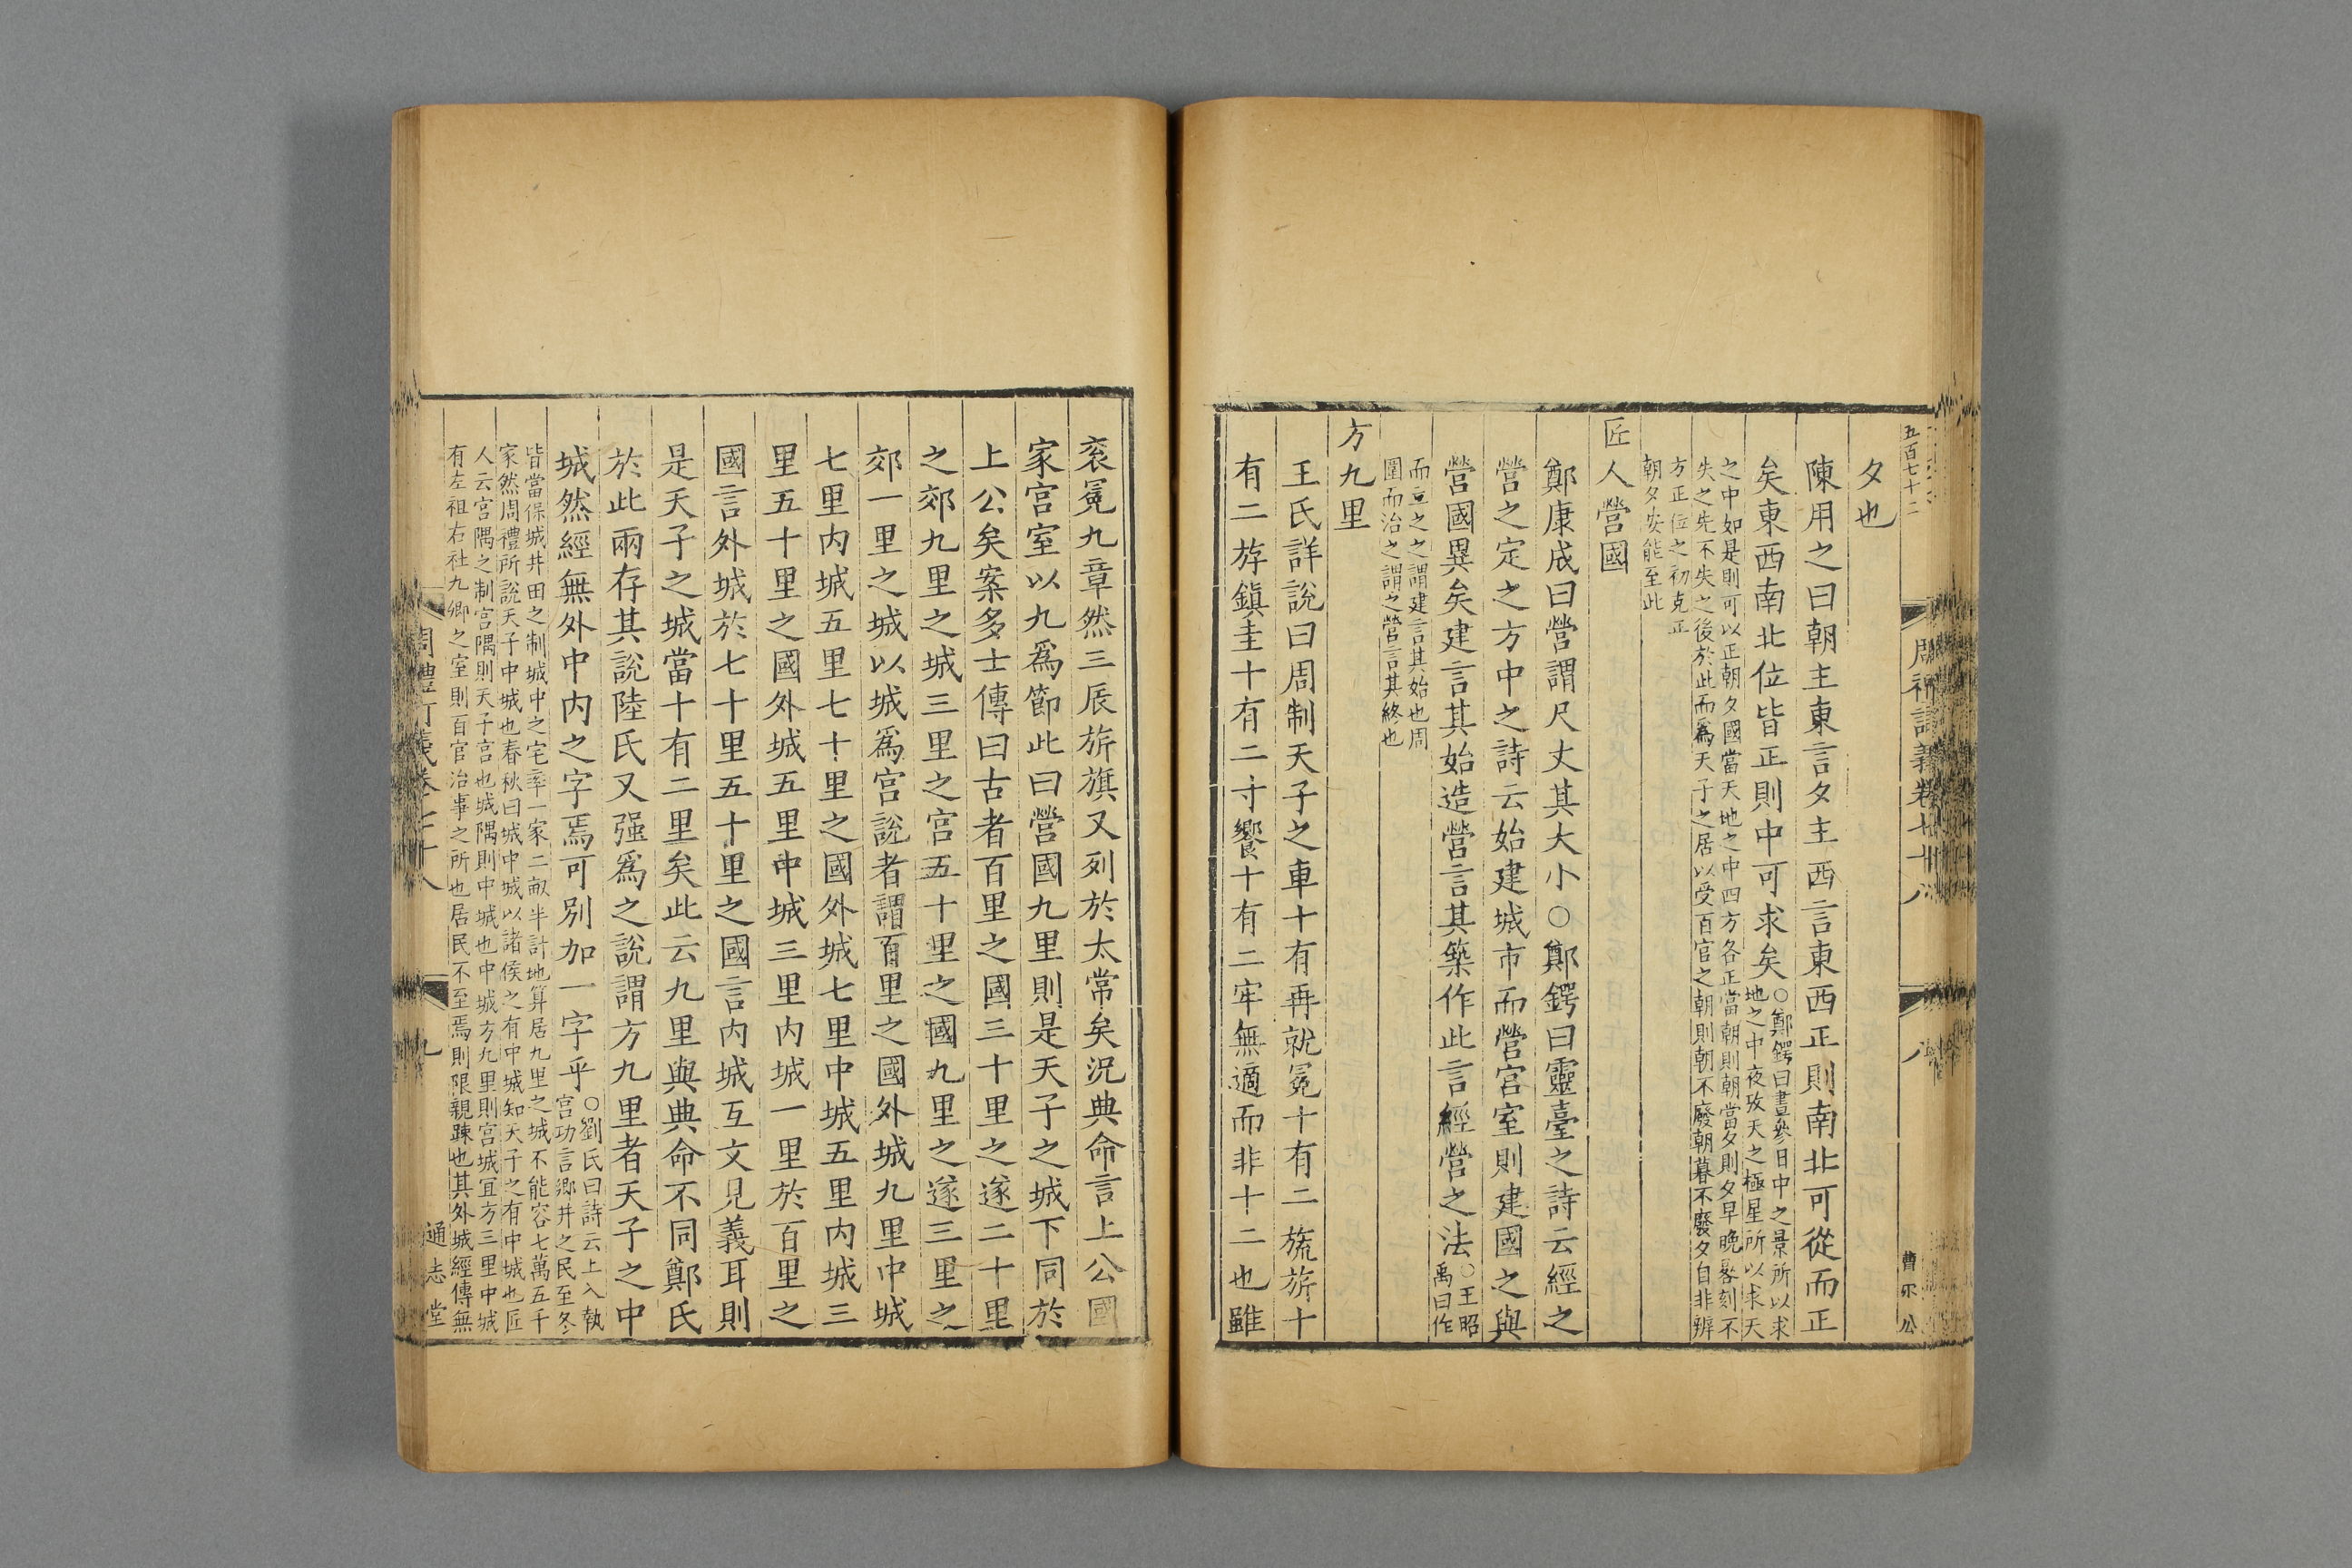 五百七十二
周禮訂義卷七十八
八
曹示公
夕也
陳用之曰朝主東言夕主西言東西正則南北可從而正
矣東西南北位皆正則中可求矣○鄭鍔曰晝參日中之景所以求
地之中夜攷天之極星所以求天
之中如是則可以正朝夕國當天地之中四方各正當朝則朝當夕則夕早晚晷刻不
失之先不失之後於此而爲天子之居以受百官之朝則朝不廢朝暮不廢夕自非辨
方正位之初克正
朝夕安能至此
匠人營國
鄭康成曰營謂尺丈其大小○鄭鍔曰靈臺之詩云經之
營之定之方中之詩云始建城市而營宮室則建國之與
營國異矣建言其始造營言其築作此言經營之法○王昭
禹曰作
而立之之謂建言其始也周
圍而治之謂之營言其終也
方九里
王氏詳說曰周制天子之車十有再就冕十有二旒旂十
有二斿鎮圭十有二寸饗十有二牢無適而非十二也雖
袞冕九章然三辰旂旗又列於太常矣況典命言上公國
家宮室以九爲節此曰營國九里則是天子之城下同於
上公矣案多士傳曰古者百里之國三十里之遂二十里
之郊九里之城三里之宮五十里之國九里之遂三里之
郊一里之城以城爲宮說者謂百里之國外城九里中城
七里內城五里七十里之國外城七里中城五里內城三
里五十里之國外城五里中城三里內城一里於百里之
國言外城於七十里五十里之國言內城互文見義耳則
是天子之城當十有二里矣此云九里與典命不同鄭氏
於此兩存其說陸氏又强爲之說謂方九里者天子之中
城然經無外中內之字焉可別加一字乎○劉氏曰詩云上入執
宮功言鄉井之民至冬
皆當保城井田之制城中之宅率一家二畝半計地算居九里之城不能容七萬五千
家然周禮所說天子中城也春秋曰城中城以諸侯之有中城知天子之有中城也匠
人云宮隅之制宮隅則天子宮也城隅則中城也中城方九里則宮城宜方三里中城
有左祖右社九卿之室則百官治事之所也居民不至焉則限親踈也其外城經傳無
周禮訂義卷七十八
九
通志堂